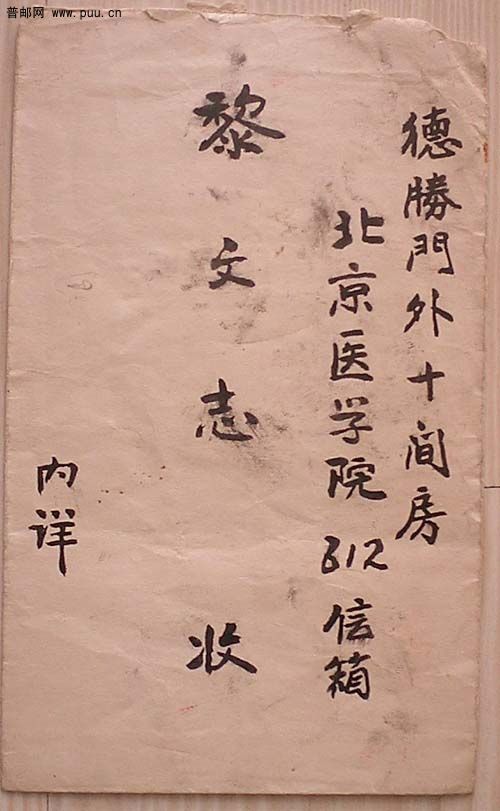 普邮网 www.puu.cn
德勝門外十间房
北京医学院612信箱
黎文志 收
内详